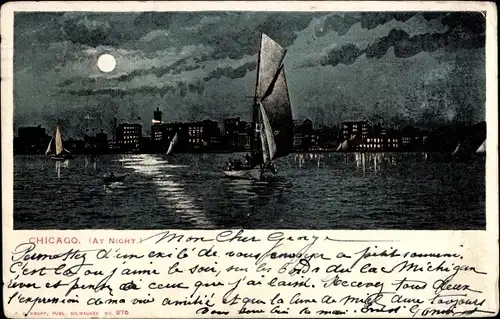 CHICAGO. (AT NIGHT.)
Mon Cher George
Permettez d'un exilé de vous envoyer ce petit souvenir.
C'est là où j'aime le soir, sur les bords du lac Michigan
et penser à ce que j'ai laissé. Recevez tous deux
l'expression de ma vive amitié et que la lune de miel dure toujours
Vous serre bien la main.
PUBL. MILWAUKEE No. 275